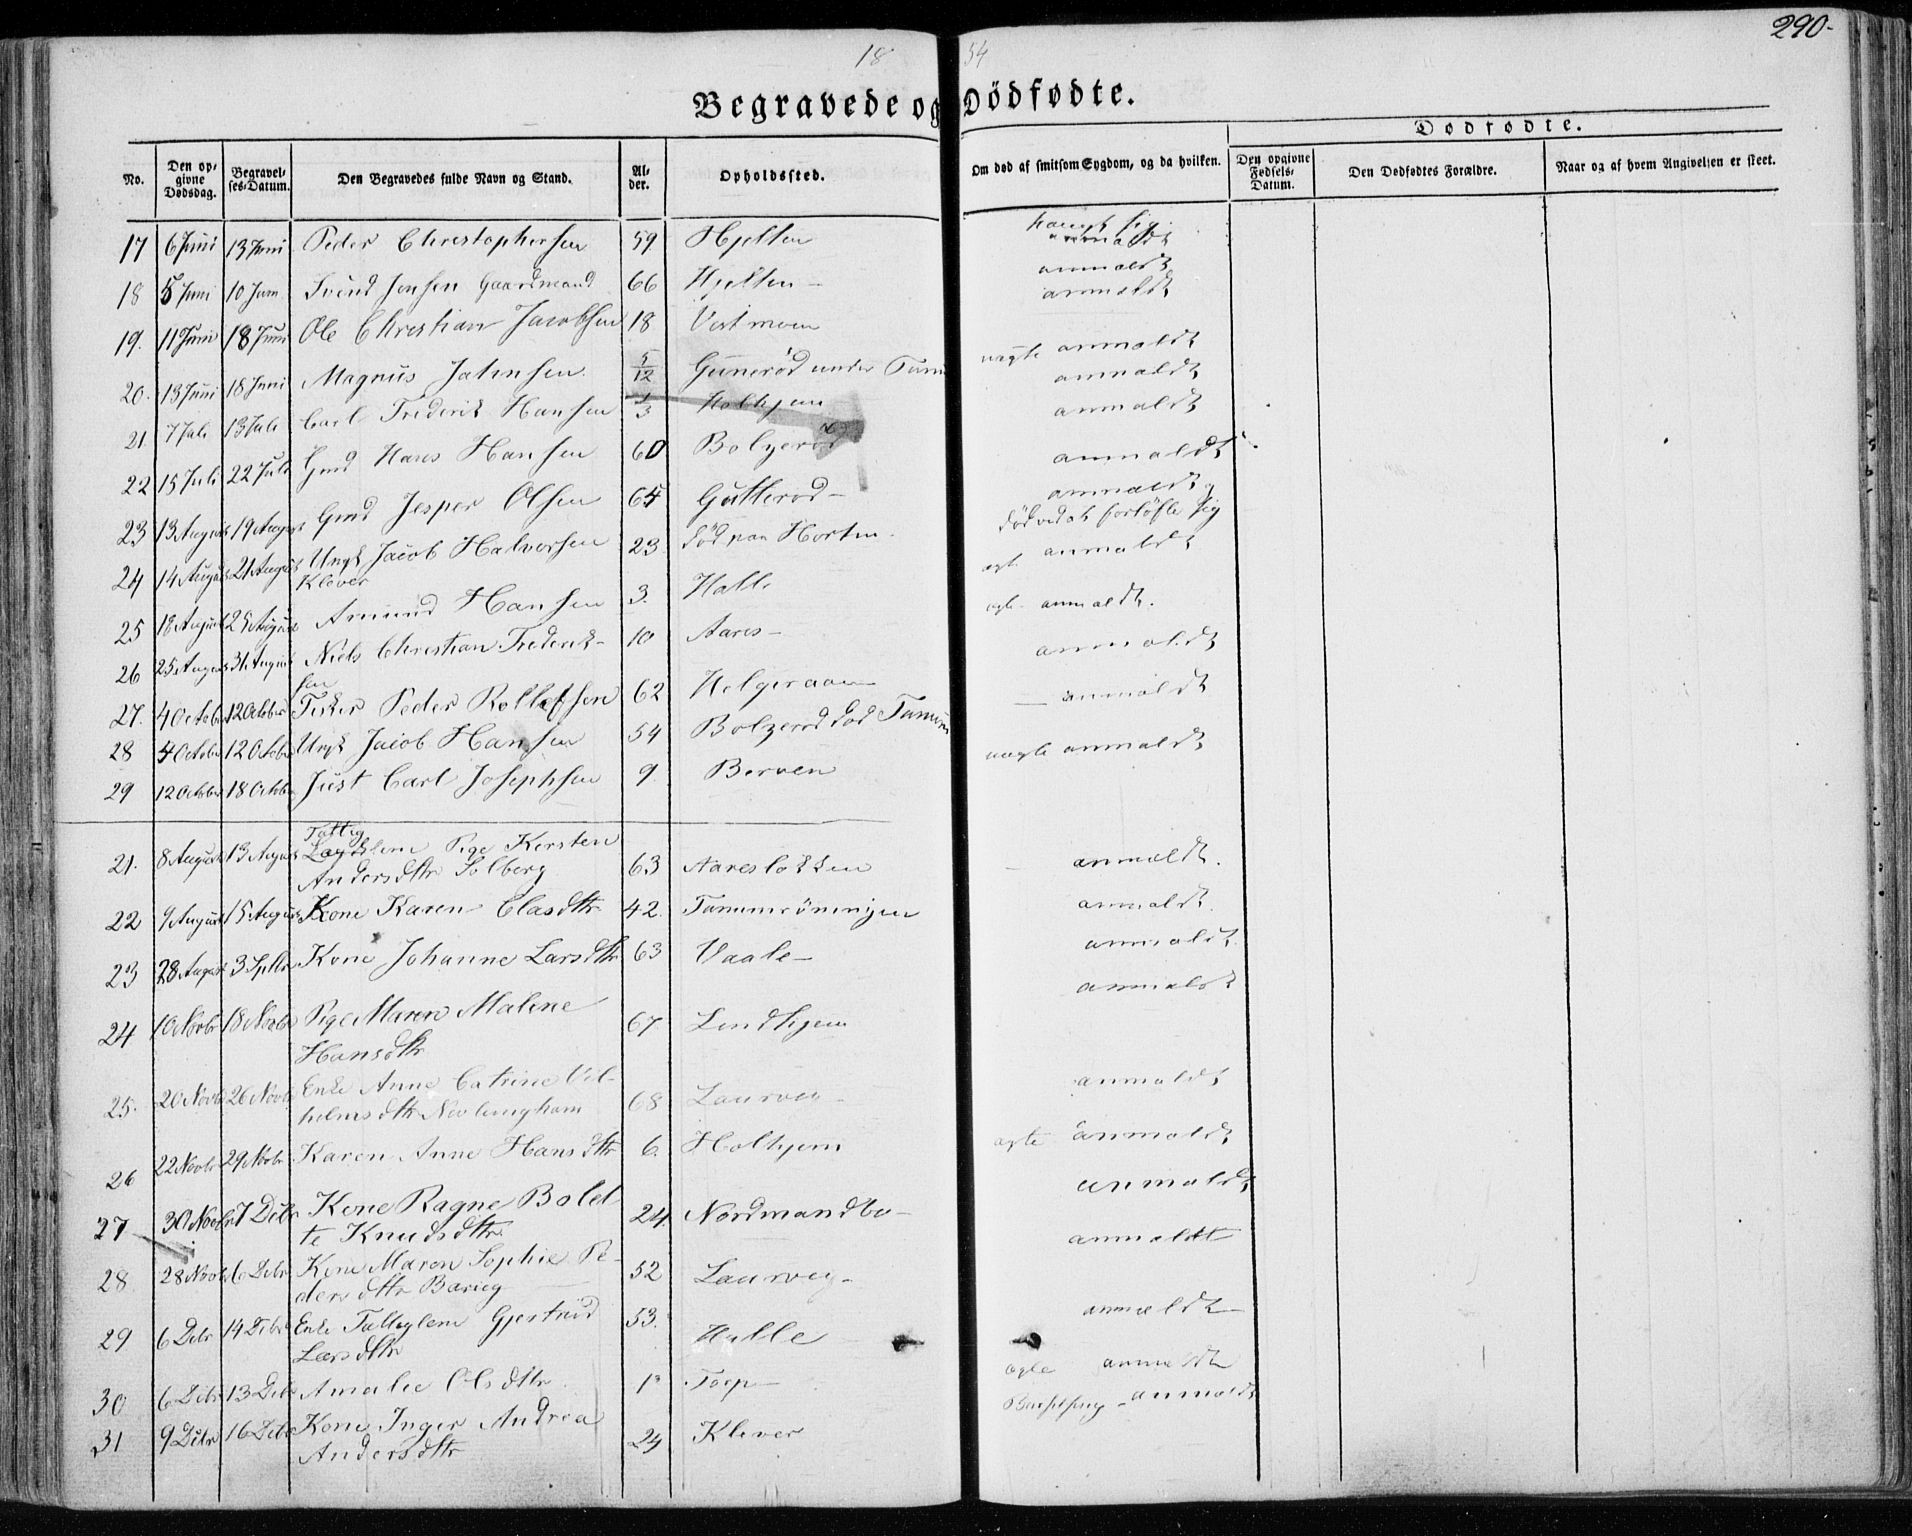 290.
18 54
Begravede og Dödfødte.
Dødfødte.
No. Den opgivne Dødsdag. Begravelses-Datum. Den Begravedes fulde Navn og Stand. Alder. Opholdssted. Om død af smitsom Sygdom, og da hvilken. Den opgivne Fødsels-Datum. Den Dødfødtes Forældre. Naar og af hvem Angivelsen er skeet.
17 6 Juni 13 Juni Peder Christophersen 59 Hjelten hængt sig anmeldt
18 5 Juni 10 Juni Svend Jensen Gaardmand 66 Hjelten - anmeldt
19. 11 Juni 18 Juni Ole Christian Jacobsen 18 Vestmoen anmeldt
20. 13 Juni 18 Juni Magnus Jahnsen 5/12 Gunerød under uægte anmeldt
21 7 Juli 13 Juli Carl Frederik Hansen 1/3 Holhjem anmeldt
22 15 Juli 22 Juli Gmd Hans Hansen 60 Bolzerød anmeldt
23 13 August 19 August Gmd Jesper Olsen 64 Gutterød - anmeldt
24 14 August 21 August Ungk Jacob Halvorsen 23 død paa Horten anmeldt
Klever død ved at forløfte sig
25 18 August 25 August Amund Hansen 3. Halle ægte anmeldt
26 25 August 31 August Niels Christian Frederik- 10 Aares - ægte anmeldt.
sen
27. 4 October 12 October Fisker Peder Rollefsen 62 Helgeraaen anmeldt
28 4 October 12 October Ungk Jacob Hansen 54 Bolzerød død - anmeldt
29 12 October 18 October Just Carl Josephsen 9 Berven uægte anmeldt
21. 8 August 13 August Fattig
Lægdslem Pige Kersten
Andersdtr Solberg 63 Aaresløkken anmeldt.
22 9 August 15 August Kone Karen Clasdtr 42. Tanumrönningen anmeldt.
23 28 August 3 Septbr Kone Johanne Larsdtr 63 Vaale - anmeldt
24 10 Novbr 18 Novbr Pige Maren Malene
Hansdtr 67 Lindhjem anmeldt
25. 20 Novbr 26 Novbr Enke Anne Catrine Vil-
helmsdtr 68 Laurvig - anmeldt
26 22 Novbr 29 Novbr Karen Anne Hansdtr 6. Holhjem ægte anmeldt
27 30 Novbr 7 Decbr Kone Ragne Bolet-
te Knudsdtr. 24. Nordmandbo - anmeldt
28 28 Novbr 6 Debr Kone Maren Sophie Pe-
dersdtr 52 Laurvig - anmeldt
29 6 Debr 14 Debr Enke Fattiglem Gjertrud
Larsdtr 53. Halle anmeldt
30 6 Debr 13 Debr Amalie Olsdtr 1 Torp ægte anmeldt
31 9 Debr 16 Debr Kone Inger Andrea
Andersdtr 24 Klever Barselseng - anmeldt